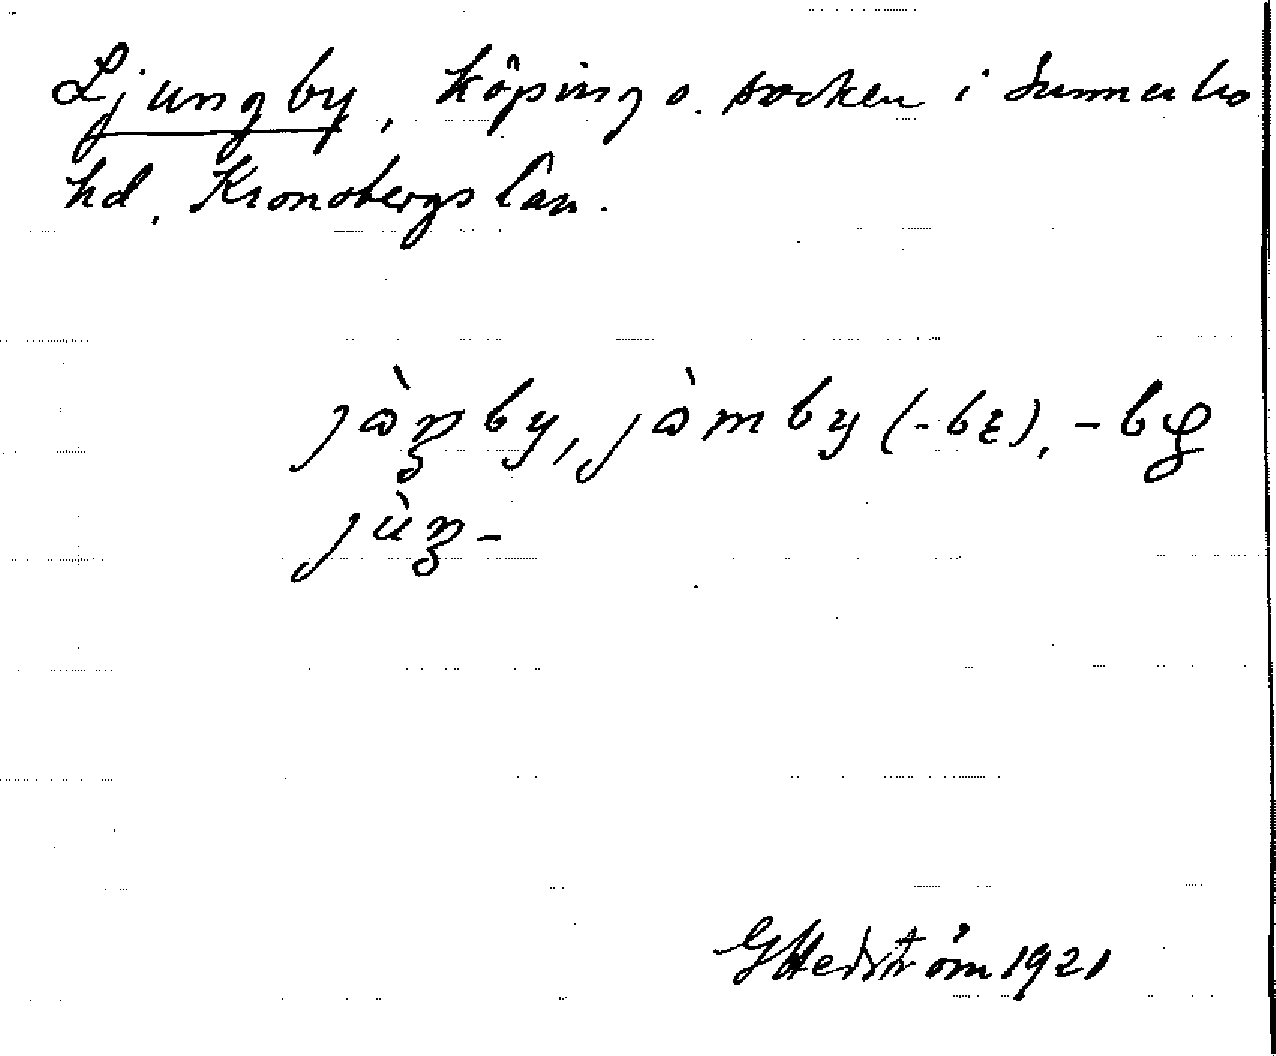 Ljungby, köping o. socken i Sunnerbo
hd, Kronobergs län.
jòŋby, jòmby (-bɛ), -bφ
jùŋ-
G Hedström 1921